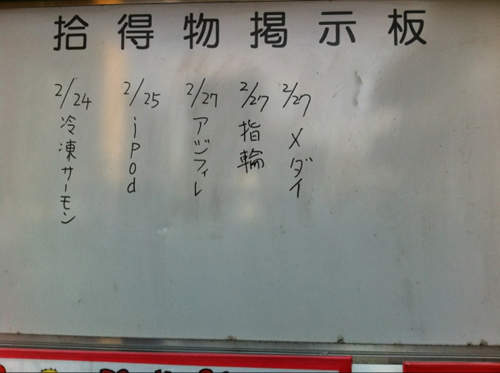 拾得物掲示板
2/24 冷凍サーモン
2/25 ipod
2/27 アジフィレ
2/27 指輪
2/27 メダイ